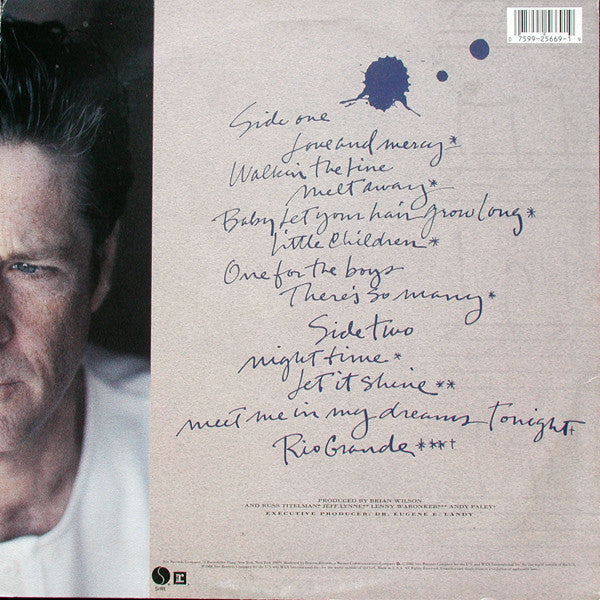 0 7599-25669-1 9
Side one
Love and mercy*
Walkin the line
melt away*
Baby Let your hair grow long*
Little Children*
One for the boys
There's so many*
Side two
night time*
Let it shine**
meet me in my dreams Tonight†
Rio Grande***†
PRODUCED BY BRIAN WILSON
AND RUSS TITELMAN* JEFF LYNNE** LENNY WARONKER*** ANDY PALEY†
EXECUTIVE PRODUCER: DR. EUGENE E. LANDY
SIRE